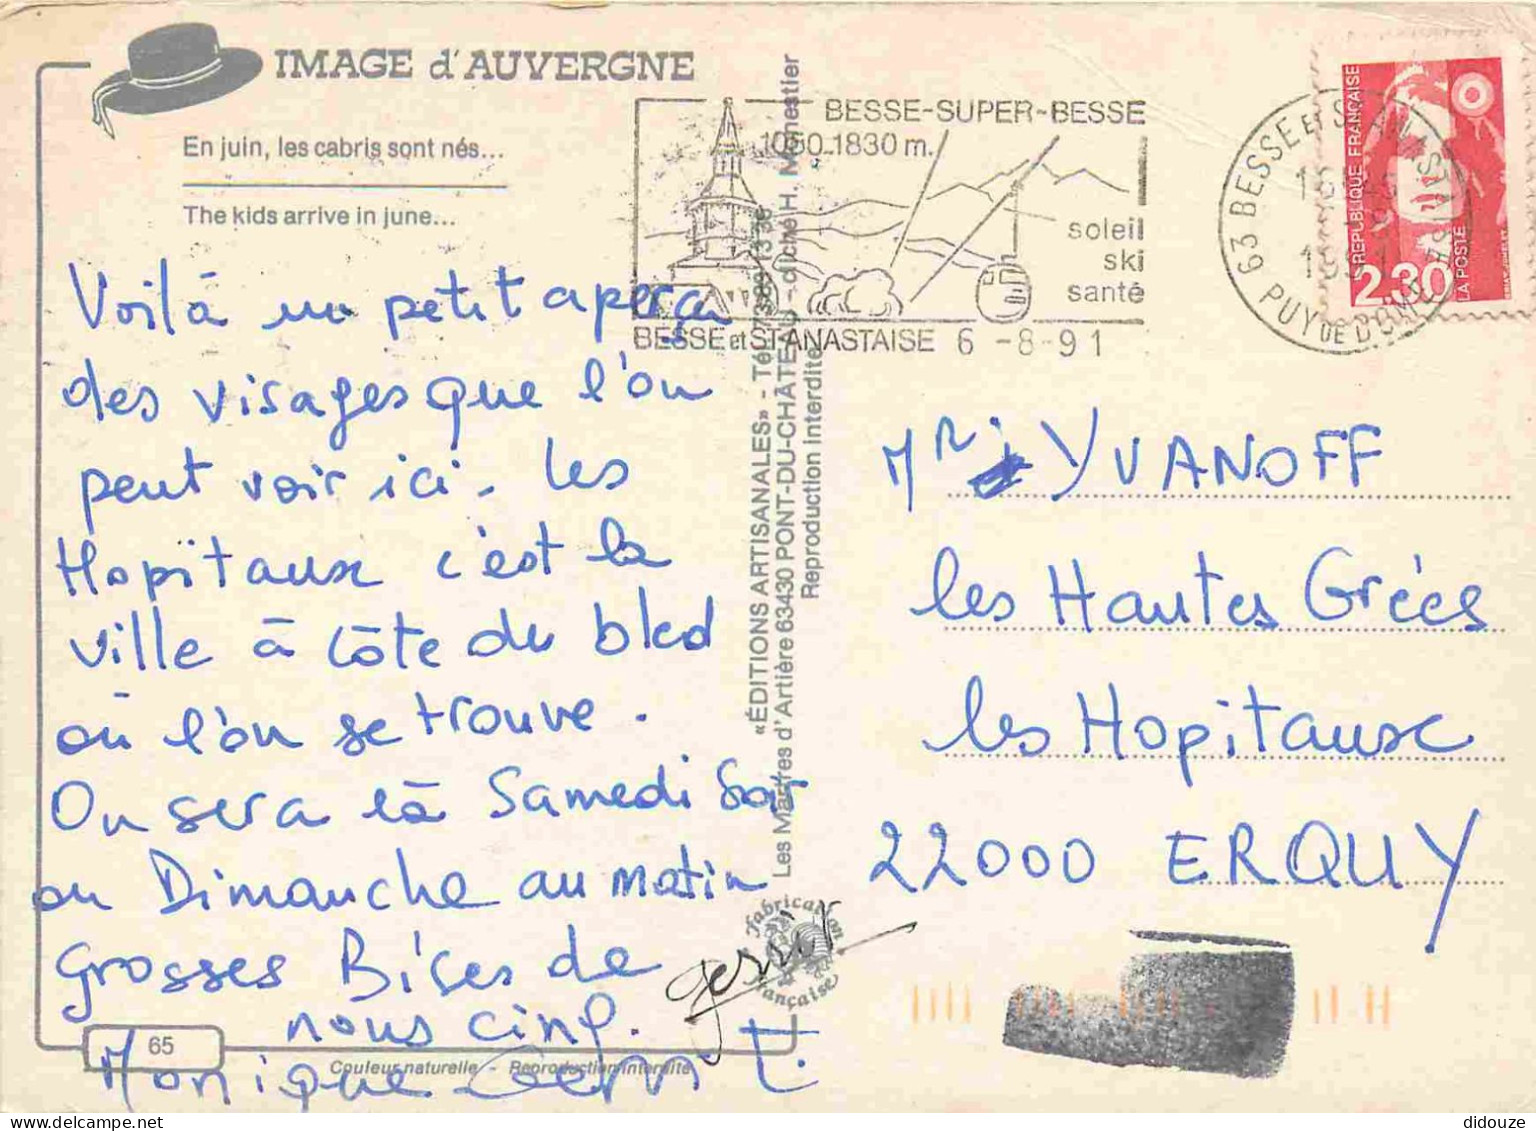 IMAGE d'AUVERGNE
En juin, les cabris sont nés...
The kids arrive in june...
Voilà un petit aperçu
des visages que l'on
peut voir ici. les
Hopïtaux c'est la
ville à côte du bled
où l'on se trouve.
On sera là Samedi Soir
ou Dimanche au matin
grosses Bises de
nous cinq.
Monique
65
Couleur naturelle - Reproduction interdite
«ÉDITIONS ARTISANALES» - Tél. 73 89 13 36
Les Martres d'Artière 63430 PONT-DU-CHÂTEAU - cliché H. Monestier
Reproduction interdite
fabrication française
BESSE-SUPER-BESSE
1050-1830 m.
soleil
ski
santé
BESSE et ST ANASTAISE 6 -8-91
63 BESSE ET ST ANASTAISE
PUY DE DOME
REPUBLIQUE FRANÇAISE
2,30
LA POSTE
Mr YVANOFF
les Hautes Grées
les Hopitaux
22000 ERQUY
didouze